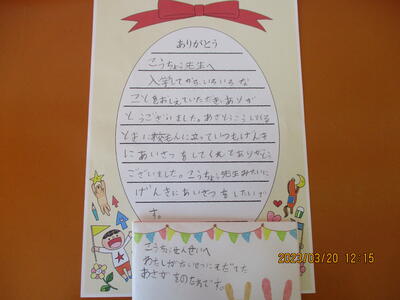 ありがとう
こうちょう先生へ
入学してから、いろいろな
ことをおしえていただき、ありが
とうございました。あさとうこうしてくる
ときに校もんに立っていつもげんき
にあいさつをしてくれてありがとう
ございました。こうちょう先生みたいに
げんきにあいさつをしたいで
す。
こうちょうせんせいへ
わたしがたいせつにそだてた
あさがおのたねです。
2023/03/20 12:15